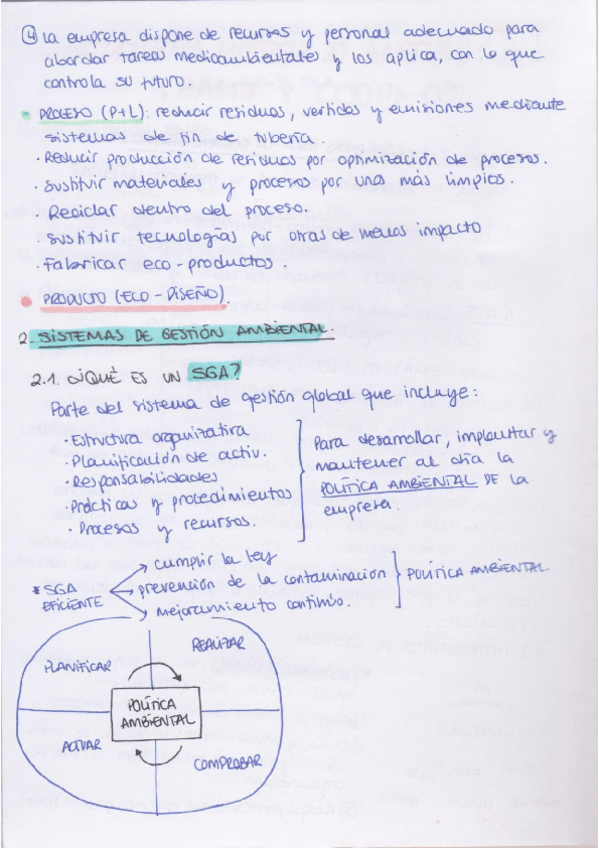 ④ La empresa dispone de recursos y personal adecuado para
abordar tareas medioambientales y los aplica, con lo que
controla su futuro.
• PROCESO (P+L): reducir residuos, vertidos y emisiones mediante
sistemas de fin de tubería.
· Reducir producción de residuos por optimización de procesos.
· Sustituir materiales y procesos por unos más limpios.
· Reciclar dentro del proceso.
· Sustituir tecnologías por otras de menos impacto
· Fabricar eco-productos.
• PRODUCTO (ECO-DISEÑO).
2. SISTEMAS DE GESTIÓN AMBIENTAL.
2.1. ¿QUÉ ES UN SGA?
Parte del sistema de gestión global que incluye:
· Estructura organizativa
· Planificación de activ.
· Responsabilidades
· Prácticas y procedimientos
· Procesos y recursos.
Para desarrollar, implantar y
mantener al día la
POLÍTICA AMBIENTAL DE la
empresa.
* SGA
EFICIENTE
cumplir la ley
prevención de la contaminación
mejoramiento continuo.
POLÍTICA AMBIENTAL
PLANIFICAR
REALIZAR
POLÍTICA
AMBIENTAL
ACTUAR
COMPROBAR